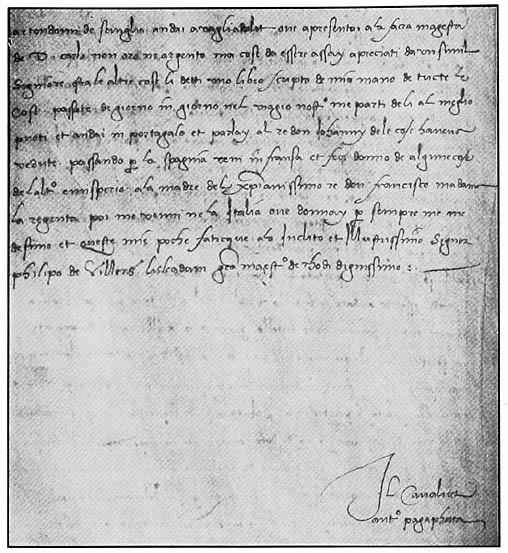 partendomi de seviglia andai a vagliadolit ove apresentai a la sacra magesta
de D. carlo non oro ne argento ma cose da essere assay apreciati da un simil
Signiore fra le altre cose li detti uno libro scripto de mia mano de tucte le
cose passate de giorno in giorno nel viagio nostº me parti de li al meglio
puoti et andai in portagalo et parlay al re don Johanny de le cose haveva
vedute. passando p la spagnia veni in fransa et feci donno de algune cose
de l altº emisperio a la madre del xpianissimo re don francisco madama
la regenta poi me venni ne la Italia ove donnay p sempre me me
desimo et queste mie poche faticque alo Inclito et Illustrissimo Signor
philipo de Villers lisleadam gra maestº de rhodi dignissimo :
Il Cavalier
antº pagaphetta